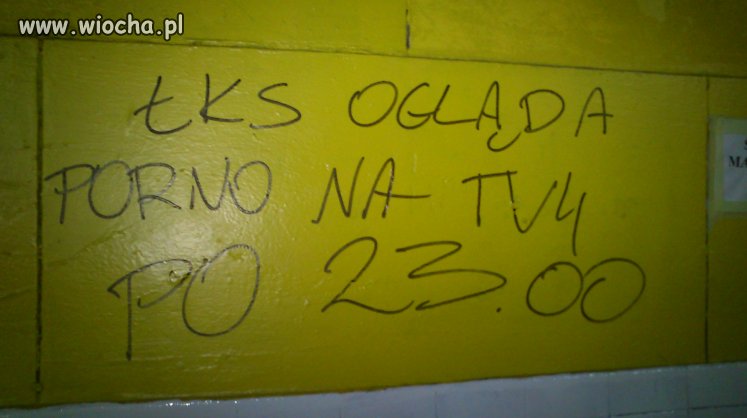 www.wiocha.pl
ŁKS OGLĄDA
PORNO NA TV4
PO 23.00